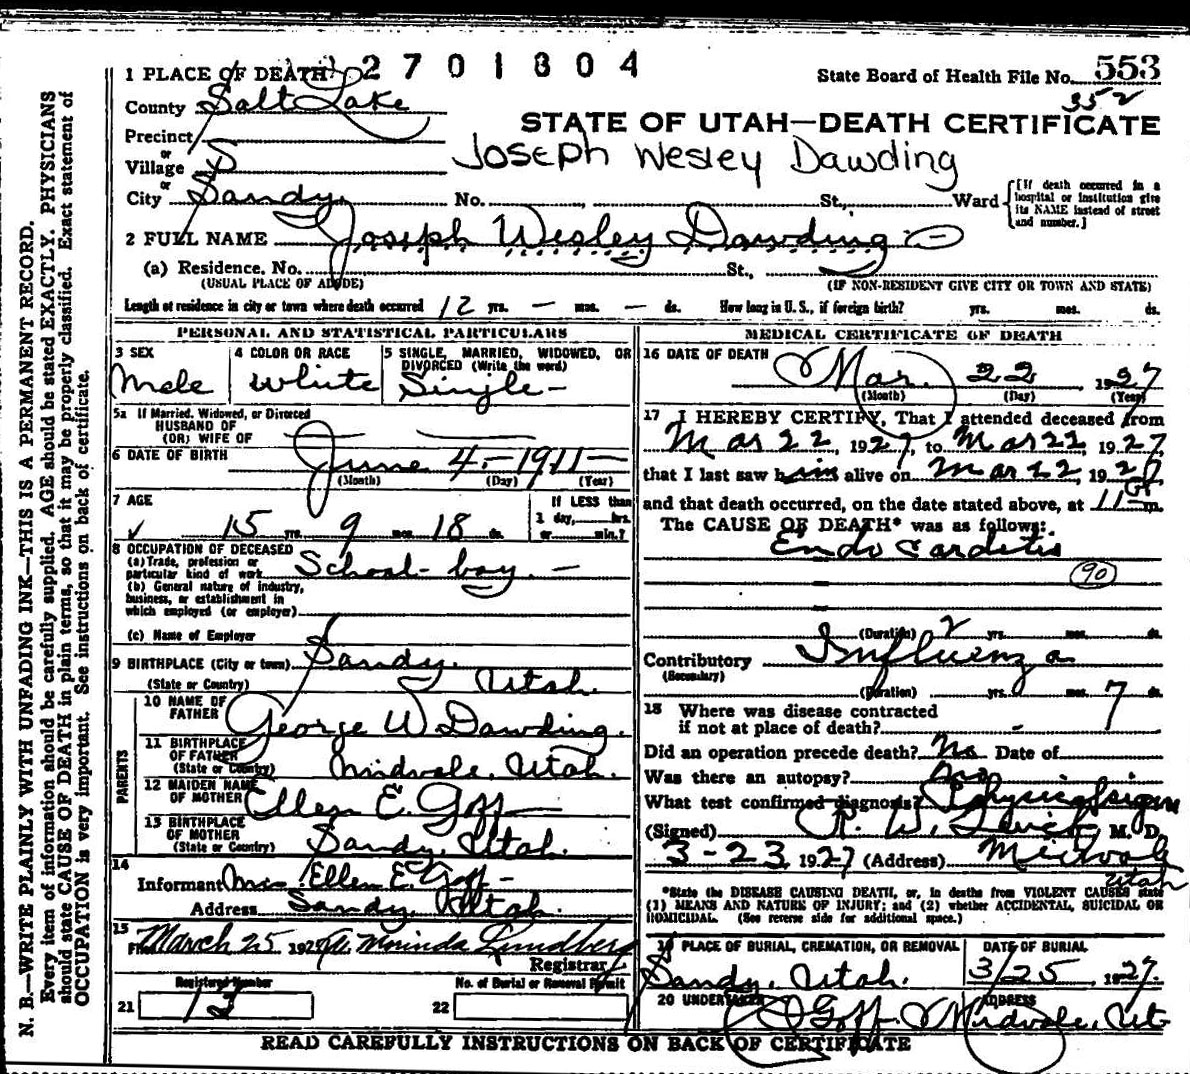 1 PLACE OF DEATH 2701304
State Board of Health File No. 553
352
County Salt Lake
STATE OF UTAH—DEATH CERTIFICATE
Precinct
or
Village
Joseph Wesley Dawding
or
City Sandy. No. St., Ward
[If death occurred in a hospital or institution give its NAME instead of street and number.]
2 FULL NAME Joseph Wesley Dawding
(a) Residence. No. St.,
(USUAL PLACE OF ABODE) (IF NON-RESIDENT GIVE CITY OR TOWN AND STATE)
Length of residence in city or town where death occurred 12 yrs. — mos. — ds. How long in U. S., if foreign birth? yrs. mos. ds.
PERSONAL AND STATISTICAL PARTICULARS
3 SEX 4 COLOR OR RACE 5 SINGLE, MARRIED, WIDOWED, OR
DIVORCED (Write the word)
Male White Single —
5a If Married, Widowed, or Divorced
HUSBAND OF
(OR) WIFE OF
6 DATE OF BIRTH June 4 - 1911 —
(Month) (Day) (Year)
7 AGE If LESS than
1 day, hrs.
15 yrs. 9 mos. 18 ds. or min.?
8 OCCUPATION OF DECEASED
(a) Trade, profession or
particular kind of work School-boy. —
(b) General nature of industry,
business, or establishment in
which employed (or employer)
(c) Name of Employer
9 BIRTHPLACE (City or town) Sandy.
(State or Country) Utah.
PARENTS
10 NAME OF
FATHER George W Dawding.
11 BIRTHPLACE
OF FATHER
(State or Country) Midvale, Utah.
12 MAIDEN NAME
OF MOTHER Ellen E. Goff
13 BIRTHPLACE
OF MOTHER
(State or Country) Sandy, Utah.
14
Informant Mrs. Ellen E. Goff -
Address Sandy, Utah.
15
Filed March 25 1927 Morinda Lundberg
Registrar
Registered Number No. of Burial or Removal Permit
21 13 22
MEDICAL CERTIFICATE OF DEATH
16 DATE OF DEATH
Mar. 22, 1927
(Month) (Day) (Year)
17 I HEREBY CERTIFY, That I attended deceased from
Mar 22, 1927, to Mar 22, 1927,
that I last saw him alive on Mar 22, 1927
and that death occurred, on the date stated above, at 11 m.
The CAUSE OF DEATH* was as follows:
Endo carditis
90
(Duration) 2 yrs. mos. ds.
Contributory Influenza
(Secondary)
(Duration) yrs. mos. 7 ds.
18 Where was disease contracted
if not at place of death? -
Did an operation precede death? No Date of
Was there an autopsy? No
What test confirmed diagnosis? Physical signs
(Signed) R. W. M. D.
3-23 1927 (Address) Midvale
Utah
*State the DISEASE CAUSING DEATH, or, in deaths from VIOLENT CAUSES state
(1) MEANS AND NATURE OF INJURY; and (2) whether ACCIDENTAL, SUICIDAL OR
HOMICIDAL. (See reverse side for additional space.)
19 PLACE OF BURIAL, CREMATION, OR REMOVAL DATE OF BURIAL
Sandy, Utah. 3/25 1927.
20 UNDERTAKER ADDRESS
Goff. Midvale, Ut-
READ CAREFULLY INSTRUCTIONS ON BACK OF CERTIFICATE
N. B.—WRITE PLAINLY WITH UNFADING INK—THIS IS A PERMANENT RECORD.
Every item of information should be carefully supplied. AGE should be stated EXACTLY. PHYSICIANS
should state CAUSE OF DEATH in plain terms, so that it may be properly classified. Exact statement of
OCCUPATION is very important. See instructions on back of certificate.